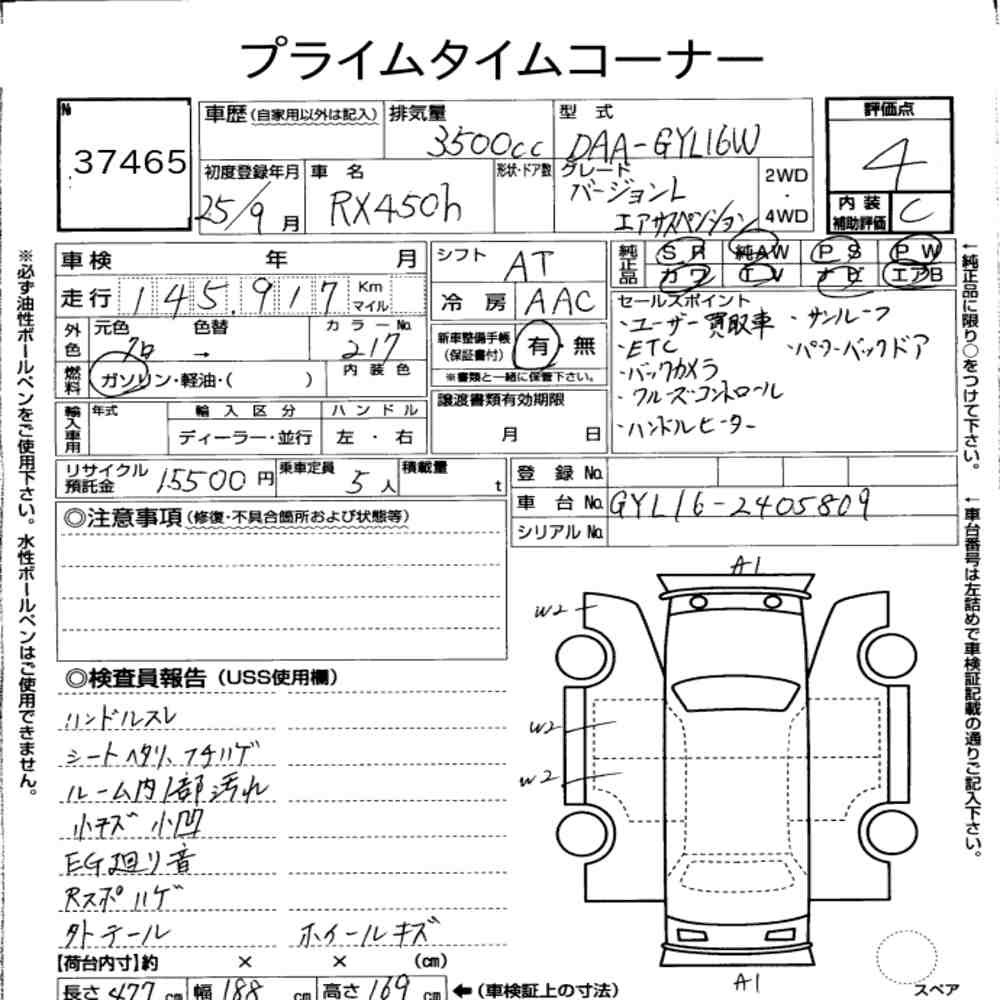 プライムタイムコーナー
No 37465
車歴(自家用以外は記入)
排気量 3500cc
型式 DAA-GYL16W
評価点 4
初度登録年月 25/9月
車名 RX450h
形状・ドア数
グレード バージョンL エアサスペンション
2WD・4WD
内装補助評価 C
※必ず油性ボールペンをご使用下さい。水性ボールペンはご使用できません。
車検 年 月
走行 145,917 Km マイル
外色 元色 クロ → 色替
カラーNo. 217
燃料 ガソリン・軽油・( )
内装色
輸入車用 年式
輸入区分 ディーラー・並行
ハンドル 左・右
シフト AT
冷房 AAC
新車整備手帳(保証書付) 有・無
※書類と一緒に保管下さい。
譲渡書類有効期限 月 日
純正品 SR 純AW PS PW
カワ TV ナビ エアB
セールスポイント
・ユーザー買取車 ・サンルーフ
・ETC ・パワーバックドア
・バックカメラ
・クルーズコントロール
・ハンドルヒーター
←純正品に限り○をつけて下さい。
リサイクル預託金 15500円
乗車定員 5人
積載量 t
登録No.
車台No. GYL16-2405809
シリアルNo.
←車台番号は左詰めで車検証記載の通りご記入下さい。
◎注意事項(修復・不具合箇所および状態等)
◎検査員報告(USS使用欄)
ハンドルスレ
シートヘタリ、フチハゲ
ルーム内1部汚れ
小キズ 小凹
EG廻り音
Rスポハゲ
外テール ホイールキズ
A1
W2
W2
W2
A1
スペア
【荷台内寸】約 × × (cm)
長さ 477cm 幅 188cm 高さ 169cm ←(車検証上の寸法)